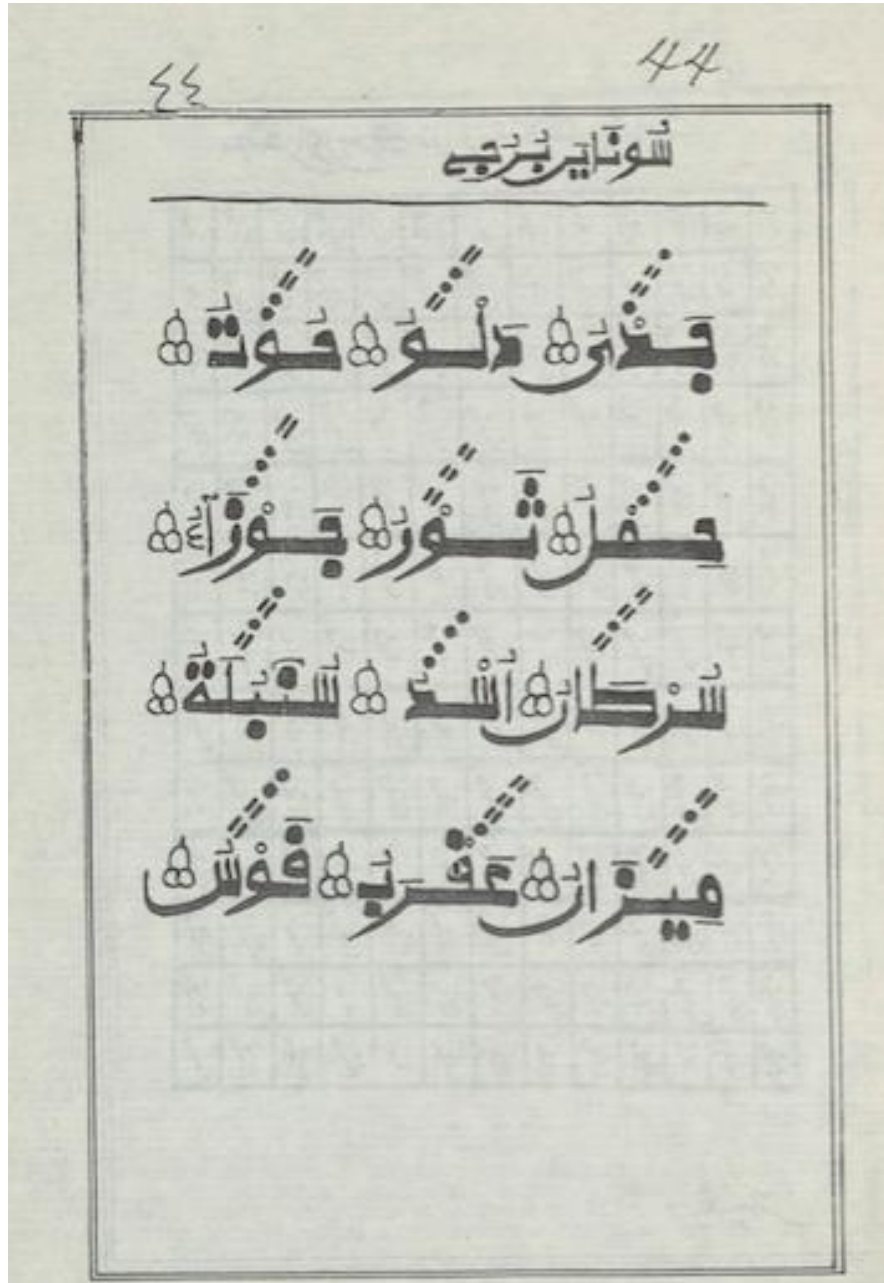 ٤٤ 44
سُونَايِن بُرُجَے
جَدْىُ دَلْوُ حُوْتُ
حِمْلُ ثَوْرُ جَوْزَأءُ
سَرْطَانُ اَسْدُ سُنْبَلَةُ
مِيزَانُ عَقْرَبُ قَوْسُ